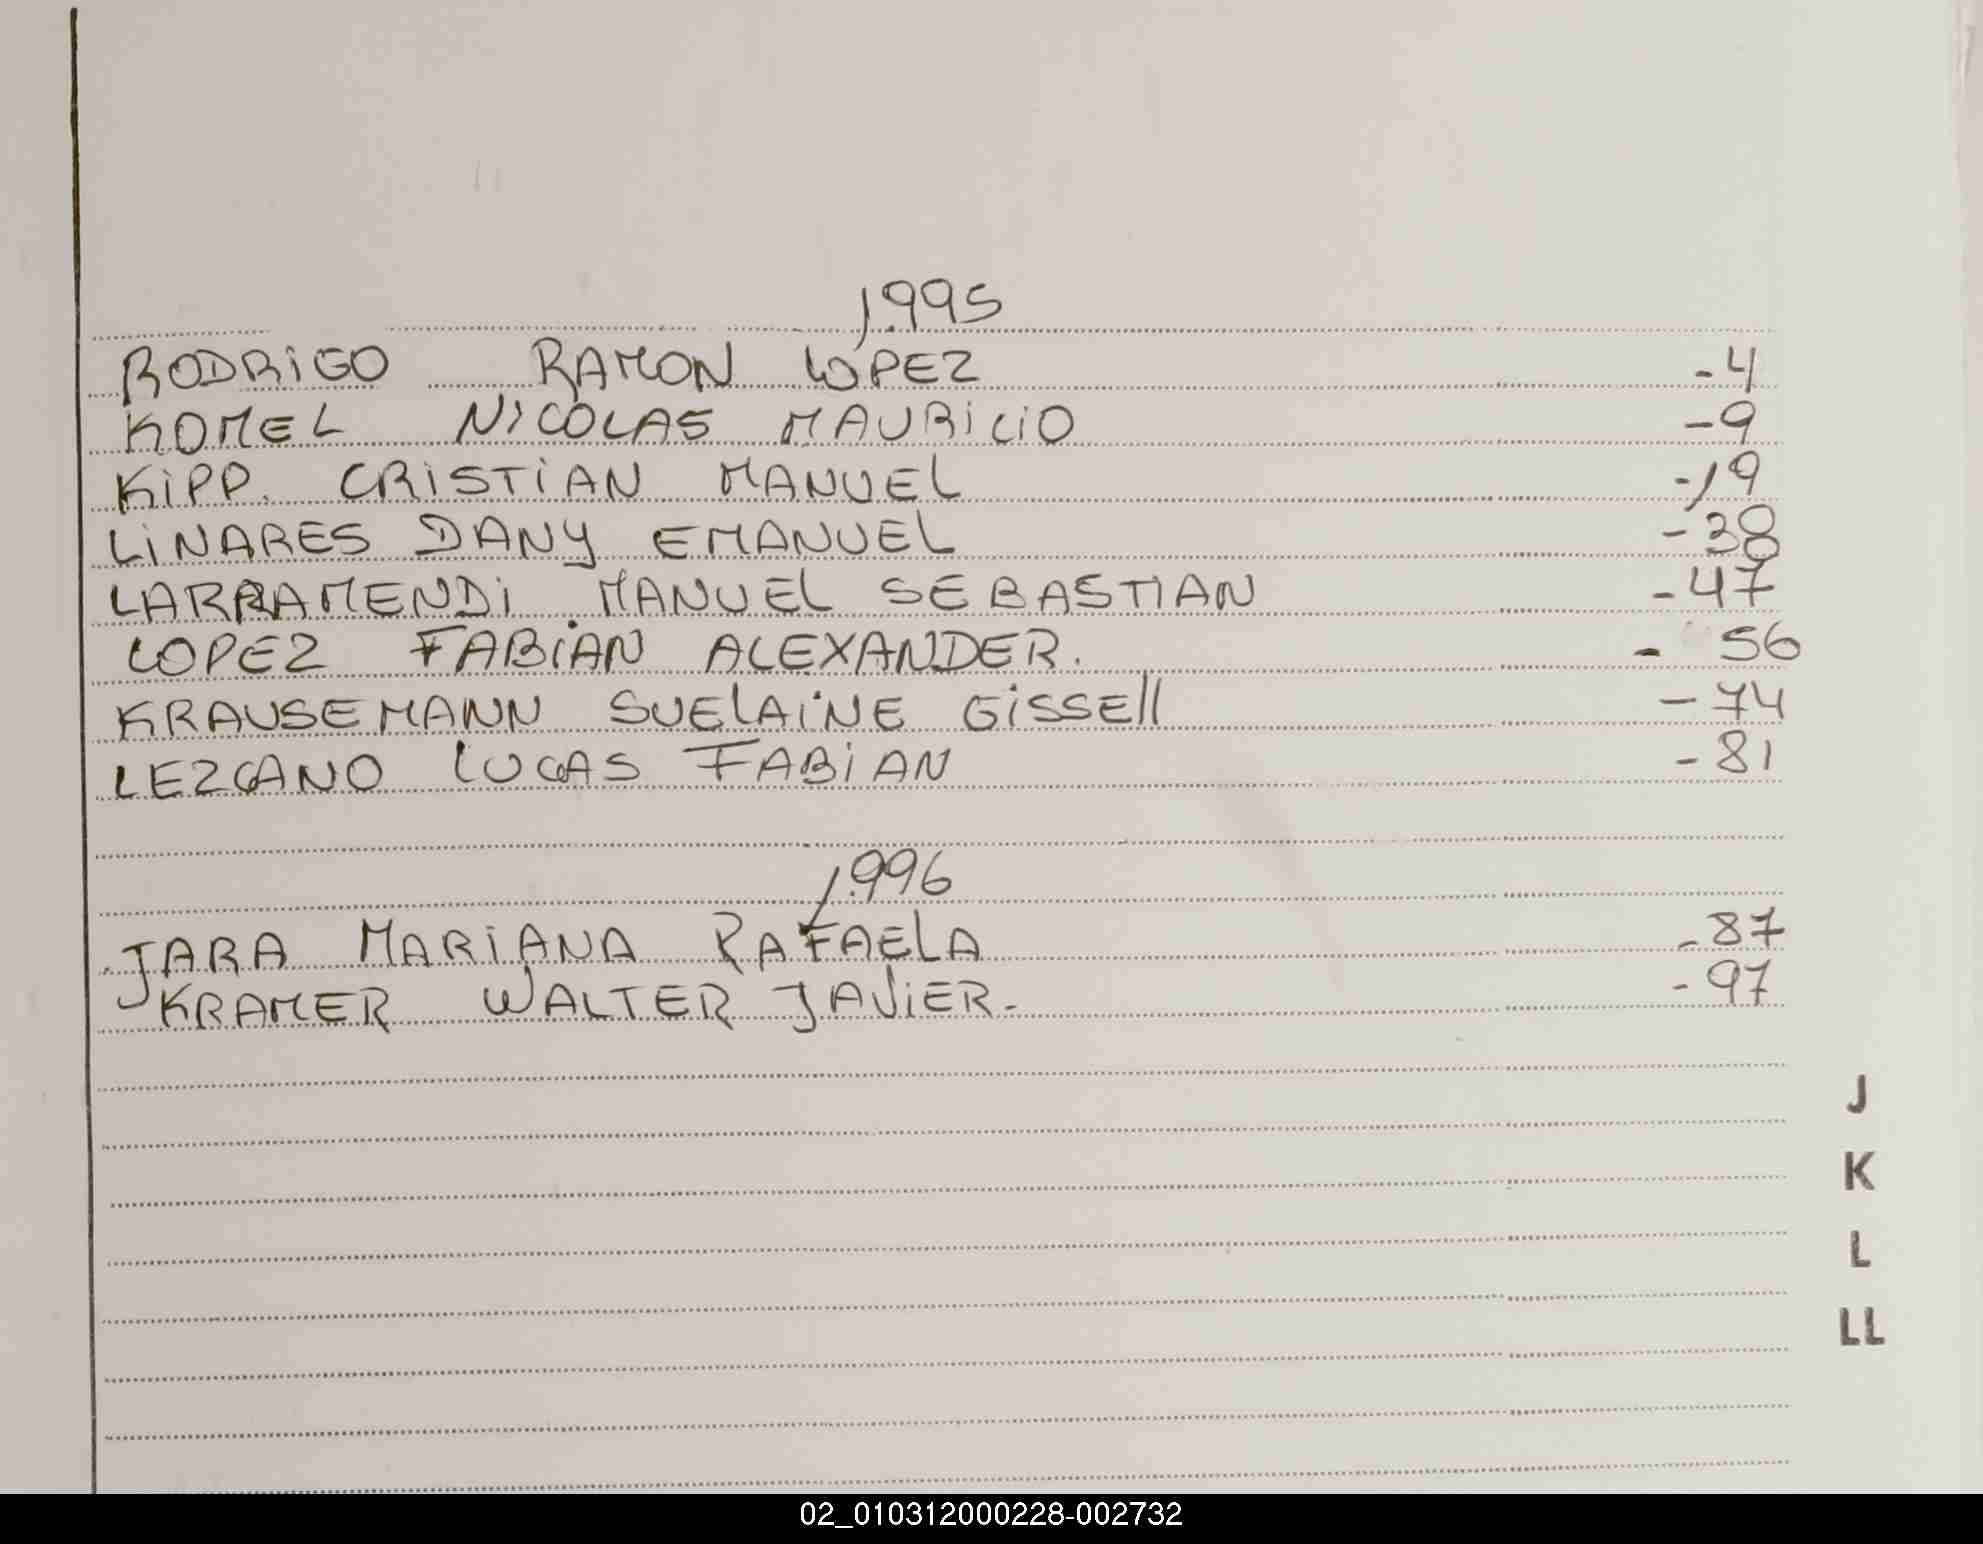 1995
RODRIGO RAMON LOPEZ -4
KOMEL NICOLAS MAURICIO -9
KIPP. CRISTIAN MANUEL -19
LINARES DANY EMANUEL -38
LARRAMENDI MANUEL SEBASTIAN -47
LOPEZ FABIAN ALEXANDER. - 56
KRAUSEMANN SUELAINE GISSEll -74
LEZCANO LUCAS FABIAN -81
1996
JARA MARIANA RAFAELA -87
KRAMER WALTER JAVIER.- -97
J
K
L
LL
02_010312000228-002732